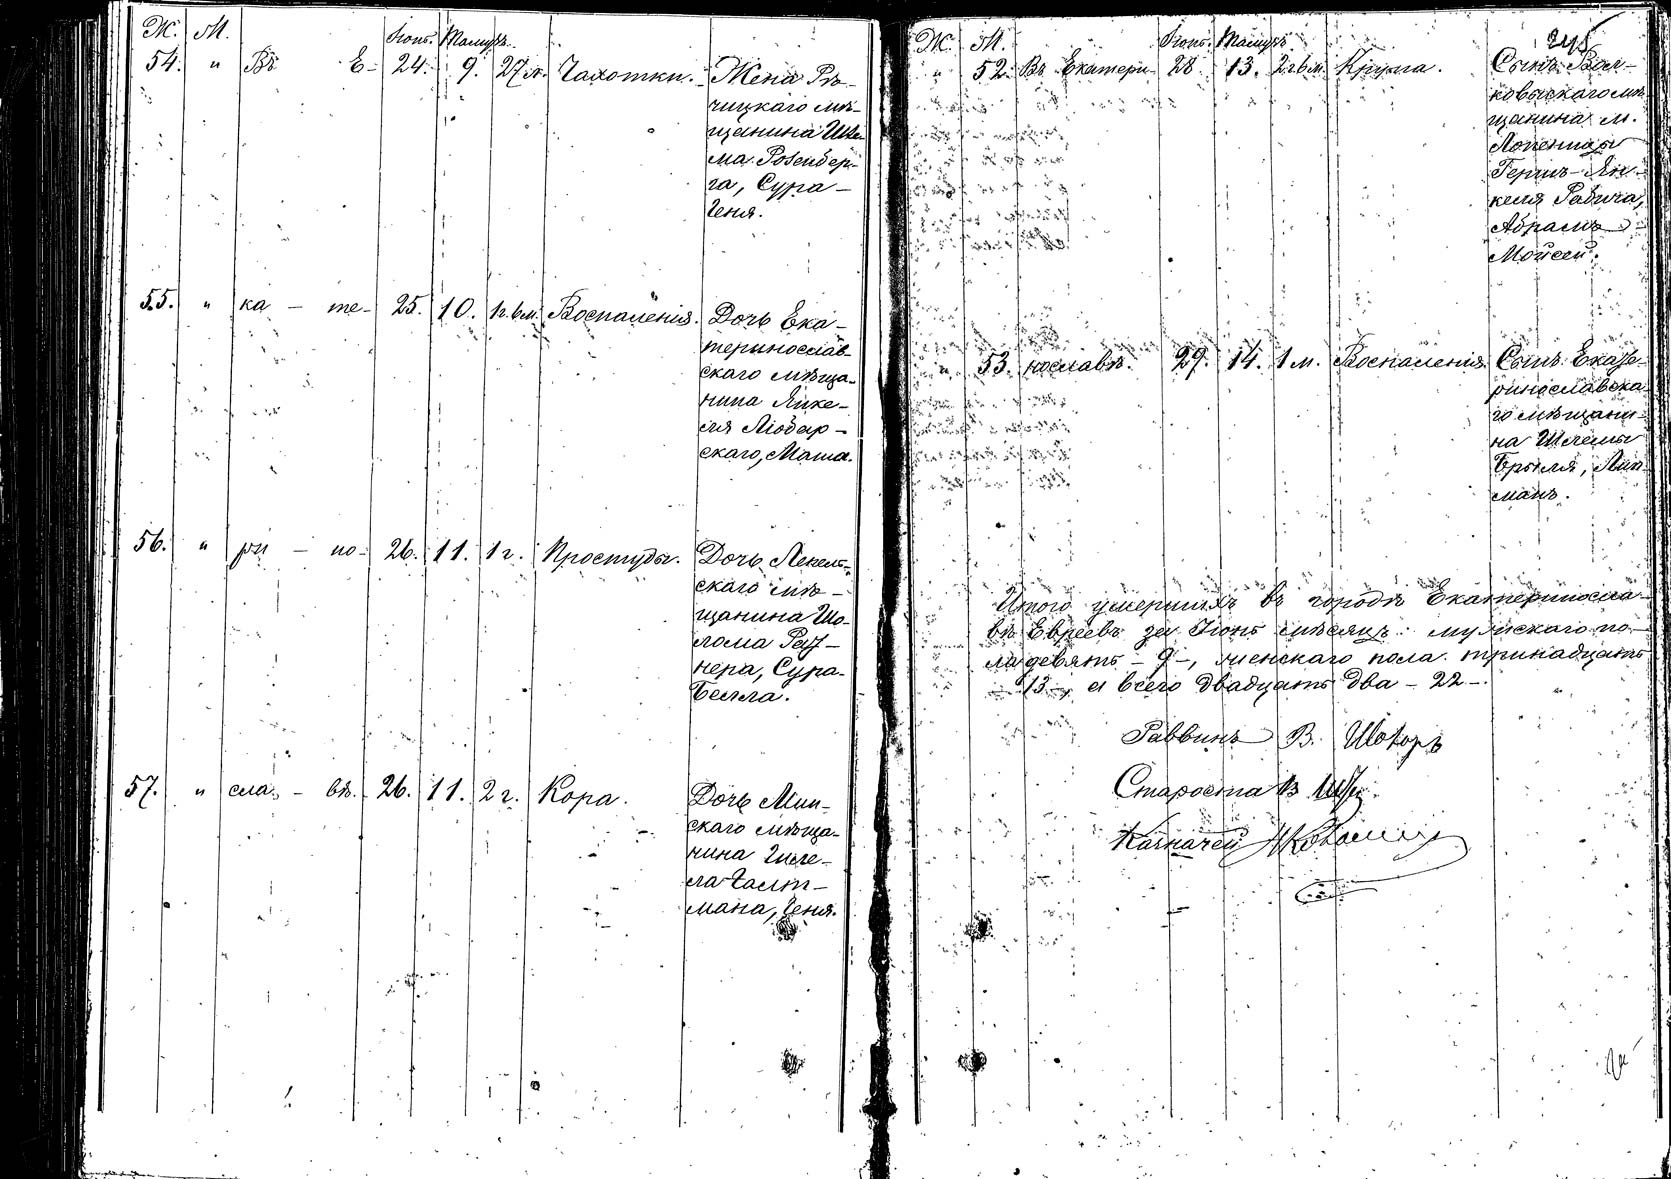 Ж. М. Іюнь. Тамузъ.
54. " Въ Е- 24. 9. 27 л. Чахотки. Жена Рѣ-
чицкаго мѣ-
щанина Шле-
ма Розенбер-
га, Сура-
Геня.
55. " ка - те- 25. 10. 1 г. 6 м. Воспаленія. Дочь Ека-
теринослав-
скаго мѣща-
нина Янке-
ля Любар-
скаго, Маша.
56. " ри - но- 26. 11. 1 г. Простуды. Дочь Лепель-
скаго мѣ-
щанина Шо-
лома
нера, Сура-
Белла.
57. " сла - вѣ. 26. 11. 2 г. Кора. Дочь Мин-
скаго мѣща-
нина Гиле-
ла Галт-
мана, Геня.
Ж. М. Іюнь. Тамузъ.
" 52. Въ Екатери- 28 13. 2 г. 6 м. Крупа. Сынъ Вол-
ковыскаго мѣ-
щанина м.
Лопеницы
Герш-Ян-
келя Рабича,
Абрамъ-
Мойсей.
" 53. нославѣ. 29. 14. 1 м. Воспаленія. Сынъ Екате-
ринославска-
го мѣщани-
на Шлемы
Брыля, Лип-
манъ.
Итого умершихъ въ городѣ Екатериносла-
вѣ Евреевъ за Іюнь мѣсяцъ: мужскаго по-
ла девять - 9 -, женскаго пола тринадцать
- 13 -, а всего двадцать два - 22 -.
Раввинъ В. Шохоръ
Староста В
Казначей